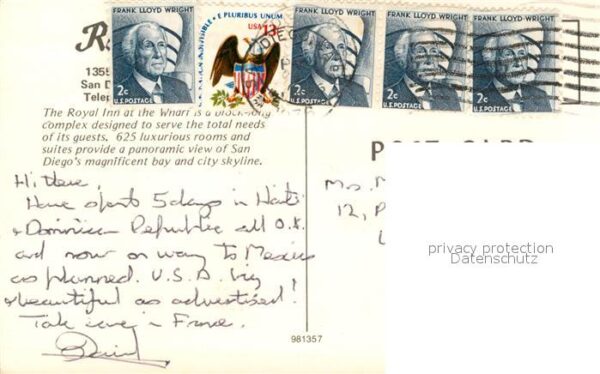 FRANK LLOYD WRIGHT
2c
U.S. POSTAGE
E PLURIBUS UNUM
USA 13c
FRANK LLOYD WRIGHT
2c
U.S. POSTAGE
FRANK LLOYD WRIGHT
2c
U.S. POSTAGE
FRANK LLOYD WRIGHT
2c
U.S. POSTAGE
R
135
San D
Telep
The Royal Inn at the Wharf is a block-long
complex designed to serve the total needs
of its guests. 625 luxurious rooms and
suites provide a panoramic view of San
Diego's magnificent bay and city skyline.
POST CARD
Hi there,
Have spent 5 days in Haiti
& Dominican Republic all O.K.
and now on way to Mexico
as planned. U.S.A. big
& beautiful as advertised!
Take care in France.
David
Mrs. M
12, P
981357
privacy protection
Datenschutz